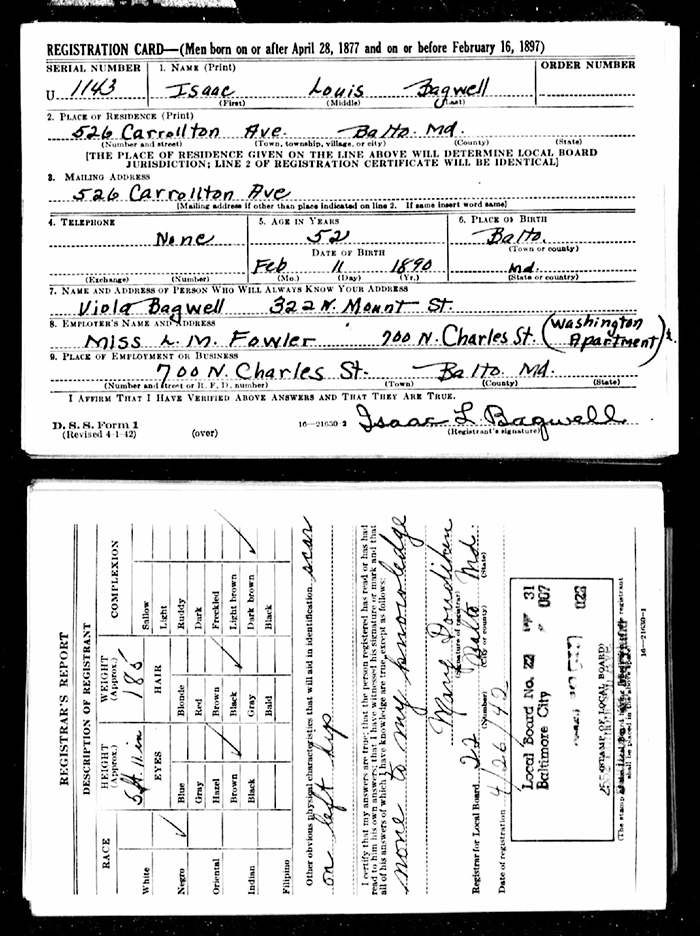 REGISTRATION CARD—(Men born on or after April 28, 1877 and on or before February 16, 1897)
SERIAL NUMBER 1. NAME (Print) ORDER NUMBER
U 1143 Isaac Louis Bagwell
(First) (Middle) (Last)
2. PLACE OF RESIDENCE (Print)
526 Carrollton Ave. Balto. Md.
(Number and street) (Town, township, village, or city) (County) (State)
[THE PLACE OF RESIDENCE GIVEN ON THE LINE ABOVE WILL DETERMINE LOCAL BOARD
JURISDICTION; LINE 2 OF REGISTRATION CERTIFICATE WILL BE IDENTICAL]
3. MAILING ADDRESS
526 Carrollton Ave
[Mailing address if other than place indicated on line 2. If same insert word same]
4. TELEPHONE 5. AGE IN YEARS 6. PLACE OF BIRTH
None 52 Balto.
(Town or county)
DATE OF BIRTH
Feb 11 1890 Md.
(Exchange) (Number) (Mo.) (Day) (Yr.) (State or country)
7. NAME AND ADDRESS OF PERSON WHO WILL ALWAYS KNOW YOUR ADDRESS
Viola Bagwell 322 N. Mount St.
8. EMPLOYER'S NAME AND ADDRESS
Miss L. M. Fowler 700 N. Charles St. (Washington
Apartment)
9. PLACE OF EMPLOYMENT OR BUSINESS
700 N. Charles St. Balto Md.
(Number and street or R. F. D. number) (Town) (County) (State)
I AFFIRM THAT I HAVE VERIFIED ABOVE ANSWERS AND THAT THEY ARE TRUE.
D. S. S. Form 1
(Revised 4-1-42) (over) 16—21630-2 Isaac L Bagwell
(Registrant's signature)
REGISTRAR'S REPORT
DESCRIPTION OF REGISTRANT
RACE HEIGHT (Approx.) WEIGHT (Approx.) COMPLEXION
5 ft. 11 in 185
EYES HAIR
White Blue Blonde Sallow
Light
Negro ✓ Gray Red Ruddy
Dark
Oriental Hazel Brown Freckled
Brown ✓ Black ✓ Light brown
Indian Black Gray Dark brown ✓
Filipino Bald Black
Other obvious physical characteristics that will aid in identification scar
on left lip
I certify that my answers are true; that the person registered has read or has had
read to him his own answers; that I have witnessed his signature or mark and that
all of his answers of which I have knowledge are true, except as follows:
none to my knowledge
Mary
(Signature of registrar)
Registrar for Local Board 22 Balto Md.
(Number) (City or county) (State)
Date of registration 4/26/42
Local Board No. 22 31
Baltimore City 007
023
(STAMP OF LOCAL BOARD)
(The stamp of the Local Board registrant
shall be placed in the above space)
16—21630-1